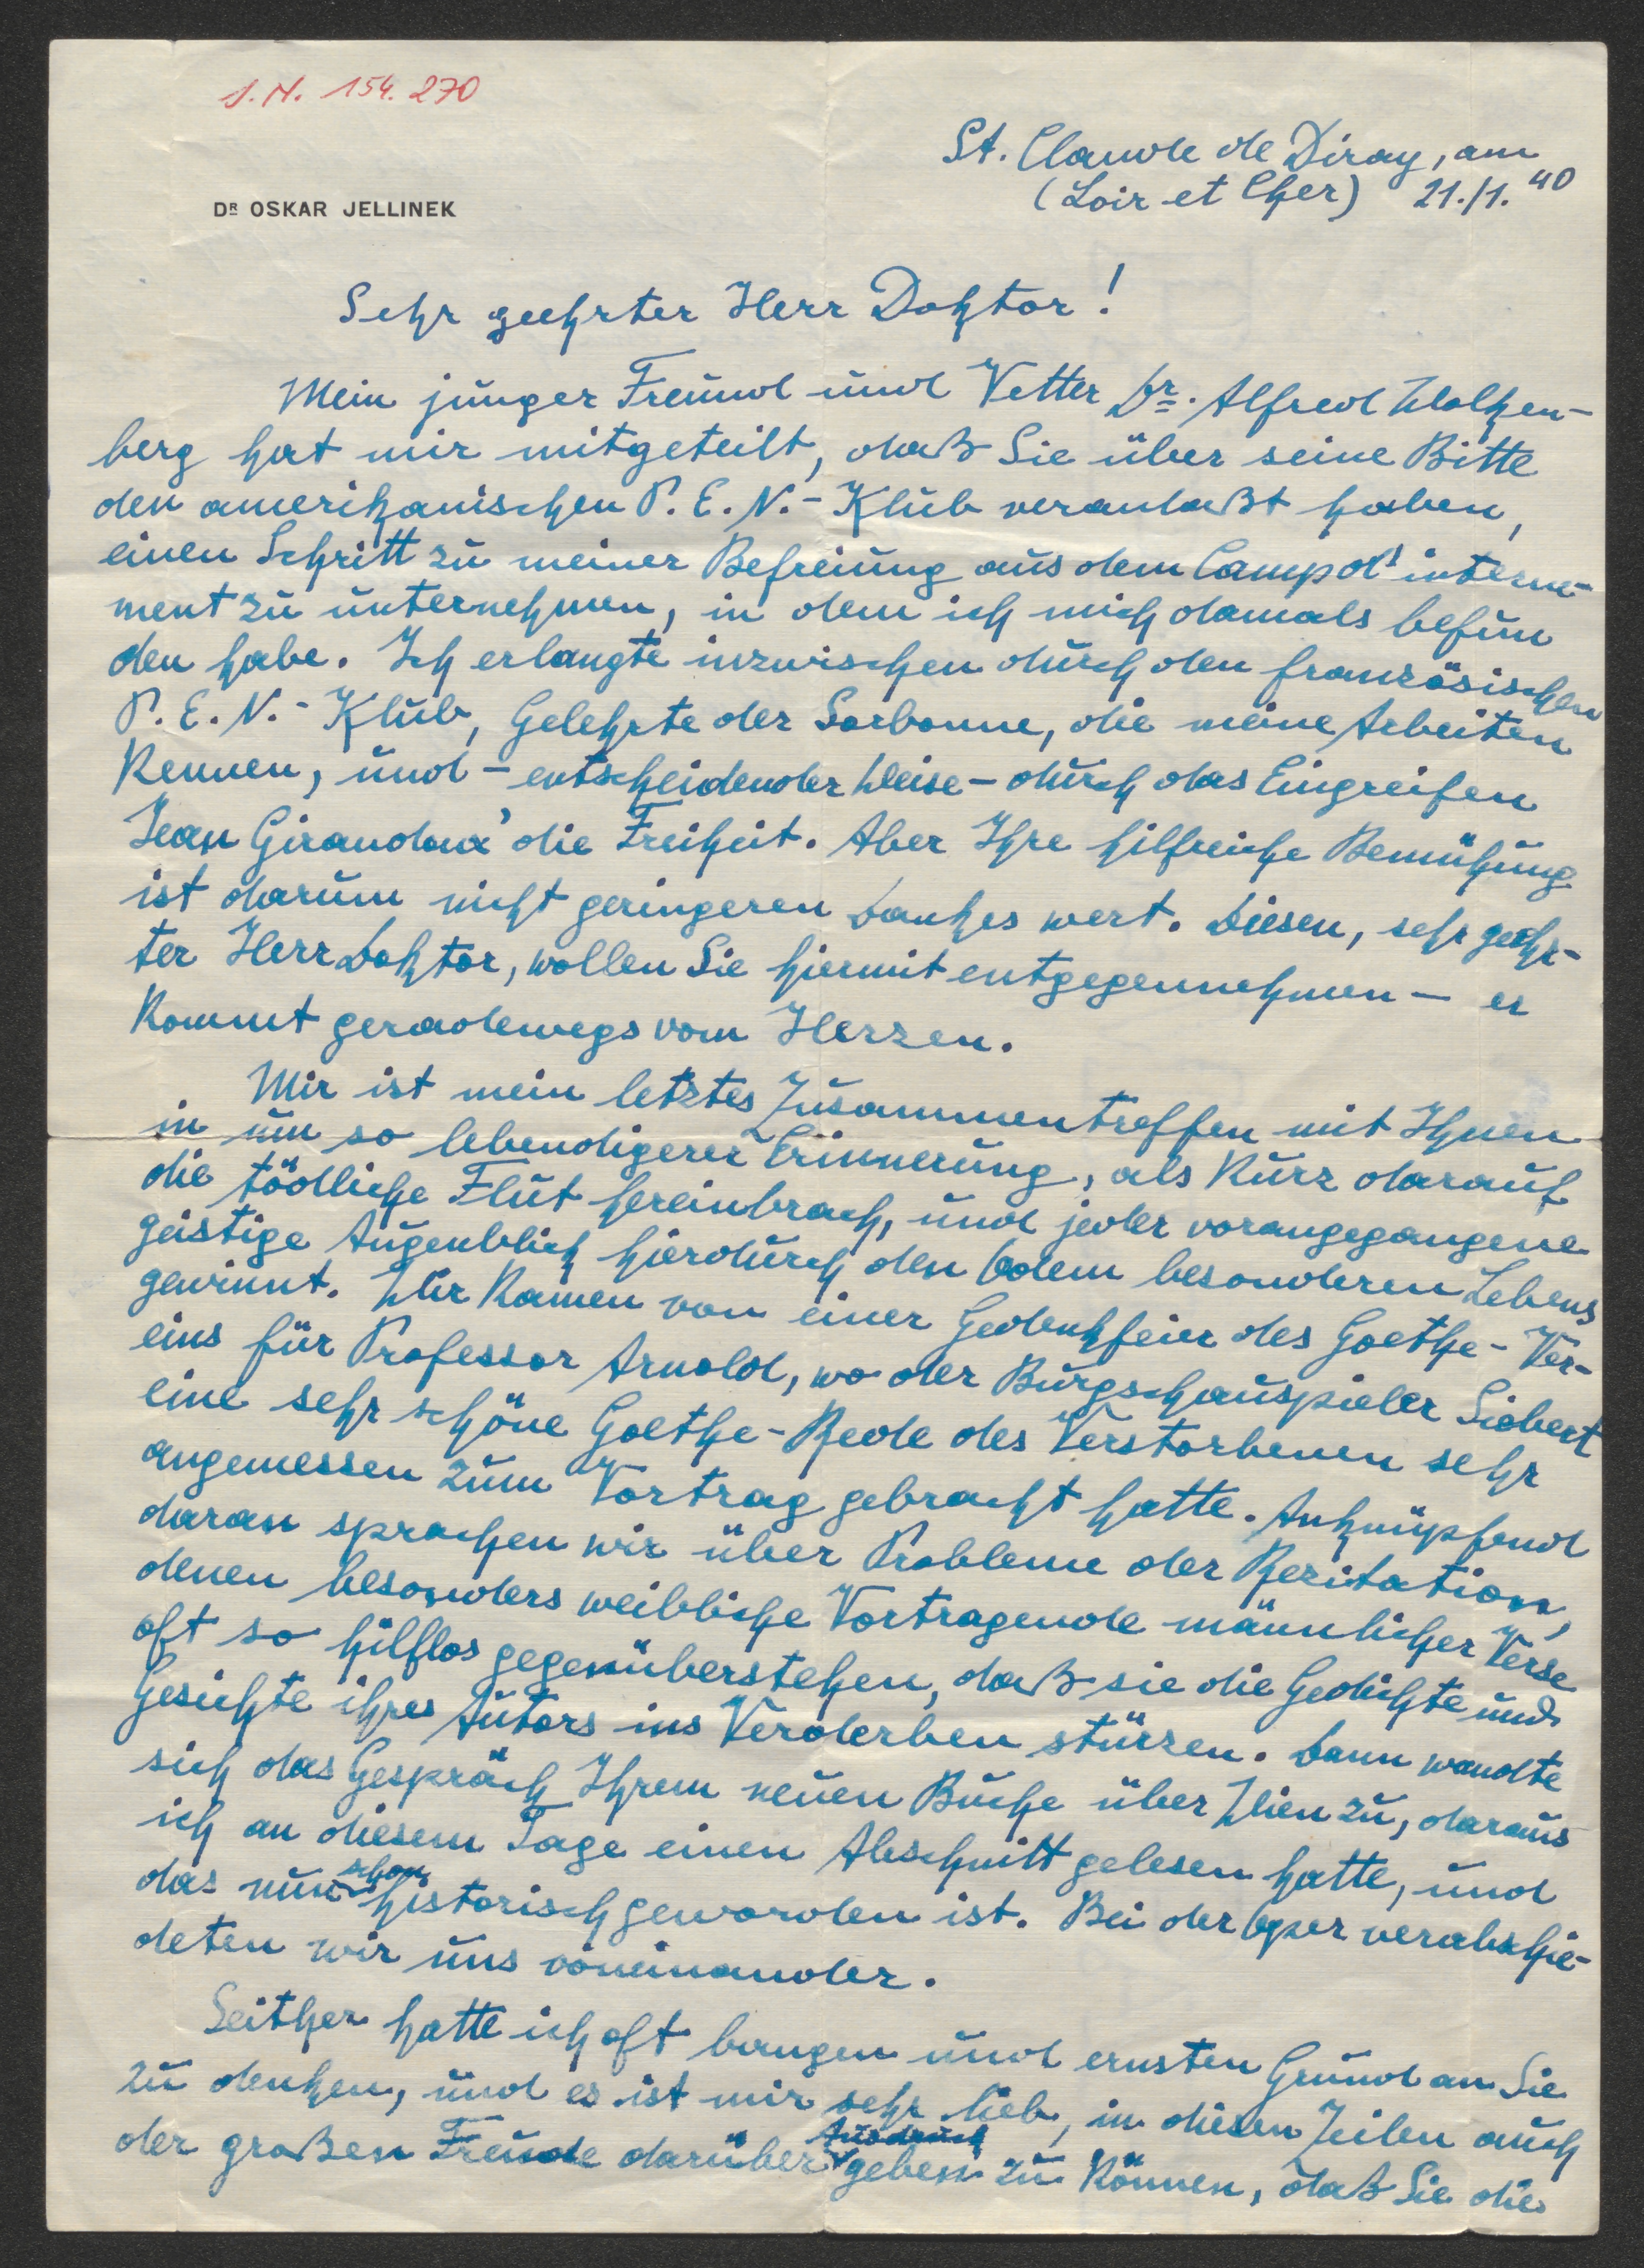 J.N. 154.270
St. Claude de Diray, am
(Loir et Cher) 21./1. 40
DR OSKAR JELLINEK
Sehr geehrter Herr Doktor!
Mein junger Freund und Vetter Dr. Alfred Wolken-
berg hat mir mitgeteilt, daß Sie über seine Bitte
den amerikanischen P. E. N.-Klub veranlaßt haben,
einen Schritt zu meiner Befreiung aus dem Camp d'interne-
ment zu unternehmen, in dem ich mich damals befun
den habe. Ich erlangte inzwischen durch den französischen
P. E. N.-Klub, Gelehrte der Sorbonne, die meine Arbeiten
kennen, und – entscheidender Weise – durch das Eingreifen
Jean Giraudoux' die Freiheit. Aber Ihre hilfreiche Bemühung
ist darum nicht geringeren Dankes wert. Diesen, sehr geehr-
ter Herr Doktor, wollen Sie hiermit entgegennehmen – er
kommt geradewegs vom Herzen.
Mir ist mein letztes Zusammentreffen mit Ihnen
in um so lebendigerer Erinnerung, als kurz darauf
die tödliche Flut hereinbrach, und jeder vorangegangene
geistige Augenblick hierdurch den Odem besonderen Lebens
gewinnt. Wir kamen von einer Gedenkfeier des Goethe-Ver-
eins für Professor Arnold, wo der Burgschauspieler Siebert
eine sehr schöne Goethe-Rede des Verstorbenen sehr
angemessen zum Vortrag gebracht hatte. Anknüpfend
daran sprachen wir über Probleme der Rezitation,
denen besonders weibliche Vortragende männlicher Verse
oft so hilflos gegenüberstehen, daß sie die Gedichte und
Gesichte ihres Autors ins Verderben stürzen. Dann wandte
sich das Gespräch Ihrem neuen Buche über Wien zu, daraus
ich an diesem Tage einen Abschnitt gelesen hatte, und
das nun schon historisch geworden ist. Bei der Oper verabschie-
deten wir uns voneinander.
Seither hatte ich oft bangen und ernsten Grund an Sie
zu denken, und es ist mir sehr lieb, in diesen Zeilen auch
der großen Freude darüber Ausdruck geben zu können, daß Sie die